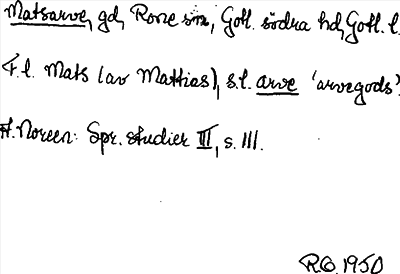 Matsarve, gd, Rone sn, Gotl. södra hd, Gotl. l.
F.l. Mats (av Mathias), s.l. arve 'arvegods'.
A. Noreen: Spr. studier III, s. 111.
R.G. 1950